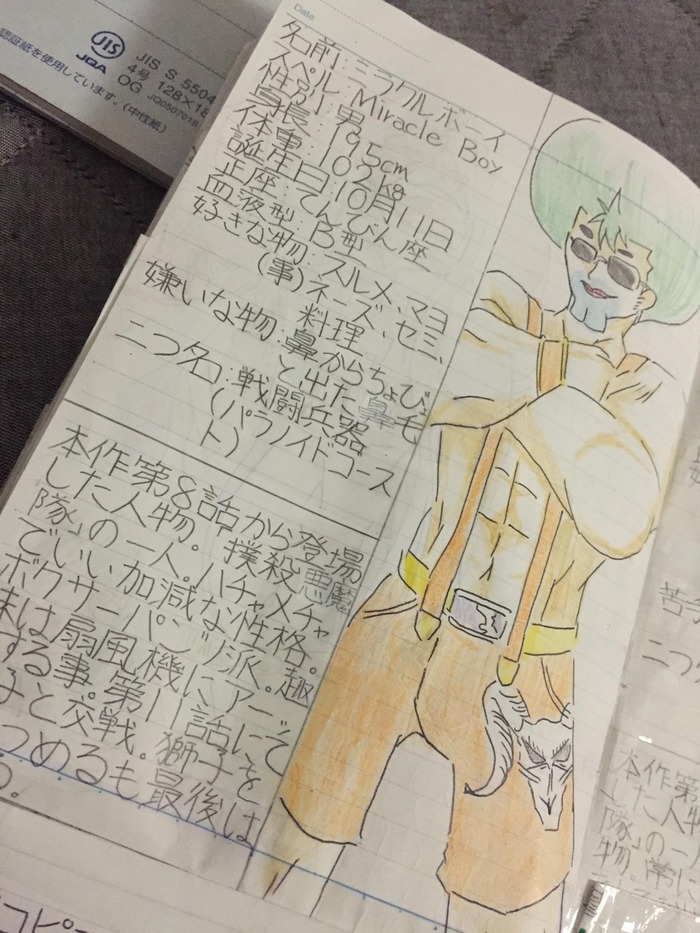 認証紙を使用しています。(中性紙)
JIS
JQA
JIS S 5504
4号 128×18
OG JQ050701
Date
名前:ミラクルボーイ
スペル:Miracle Boy
性別:男
身長:195cm
体重:102kg
誕生日:10月11日
正座:てんびん座
血液型:B型
好きな物:スルメ、マヨ
(事)ネーズ、セミ、
料理
嫌いな物:鼻からちょび
と出た鼻毛
二つ名:戦闘兵器
(パラノイドコース
ト)
本作第8話から登場
した人物。撲殺悪魔
隊」の一人。ハチャメチャ
でいい加減な性格。
ボクサーパンツ派。趣
味は扇風機にアー
する事。第11話にて
と交戦。獅子を
つめるも最後は
。
苦
二つ
本作第
した人物
隊」の一
物。常に
コピ